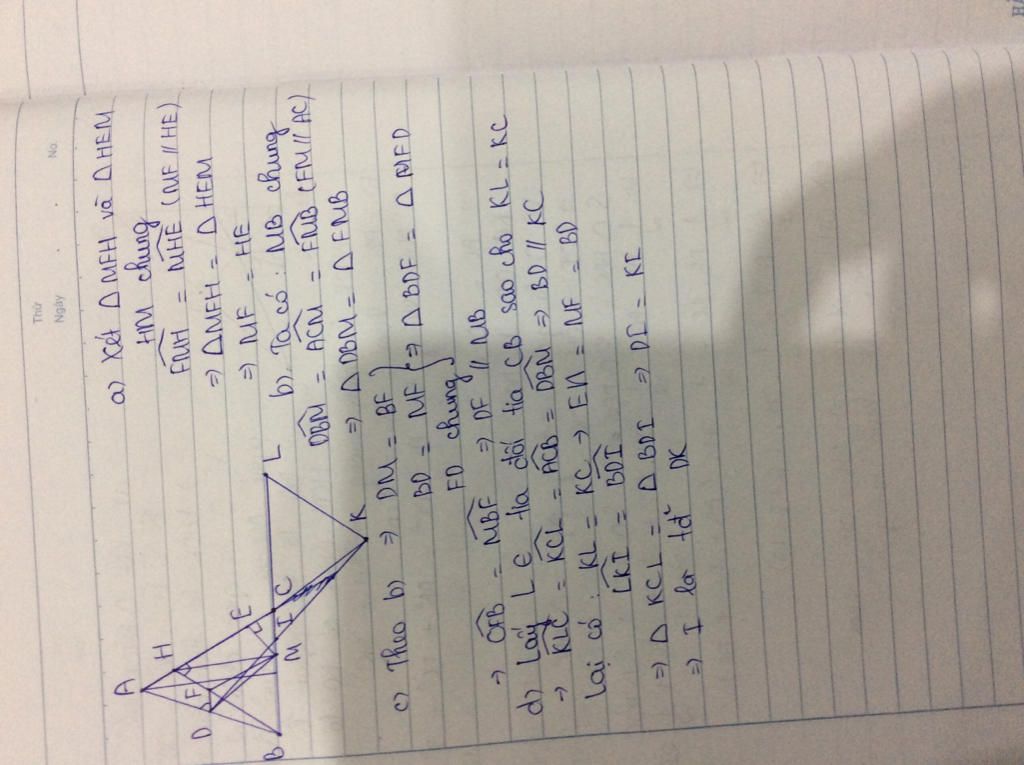 Thứ
Ngày
No.
a) Xét △ MFH và △ HEM
HM chung
FMH = MHE (MF // HE)
⇒ △MFH = △ HEM
⇒ MF = HE
b) Ta có : MB chung
DBM = ACM = FMB (FM // AC)
⇒ △ DBM = △ FMB
A
H
D
F
E
B
M
I
C
K
L
c) Theo b) ⇒ DM = BF
BD = MF } ⇒ △ BDF = △ MFD
FD chung
→ DFB = MBF ⇒ DF // MB
d) Lấy L ∈ tia đối tia CB sao cho KL = KC
→ KLC = KCL = ACB = DBM ⇒ BD // KC
Lại có : KL = KC → EH = MF = BD
LKI = BDI
⇒ △ KCL = △ BDI ⇒ DI = KI
⇒ I là tđ DK